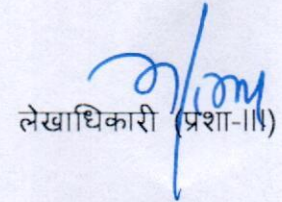 लेखाधिकारी (प्रशा-III)